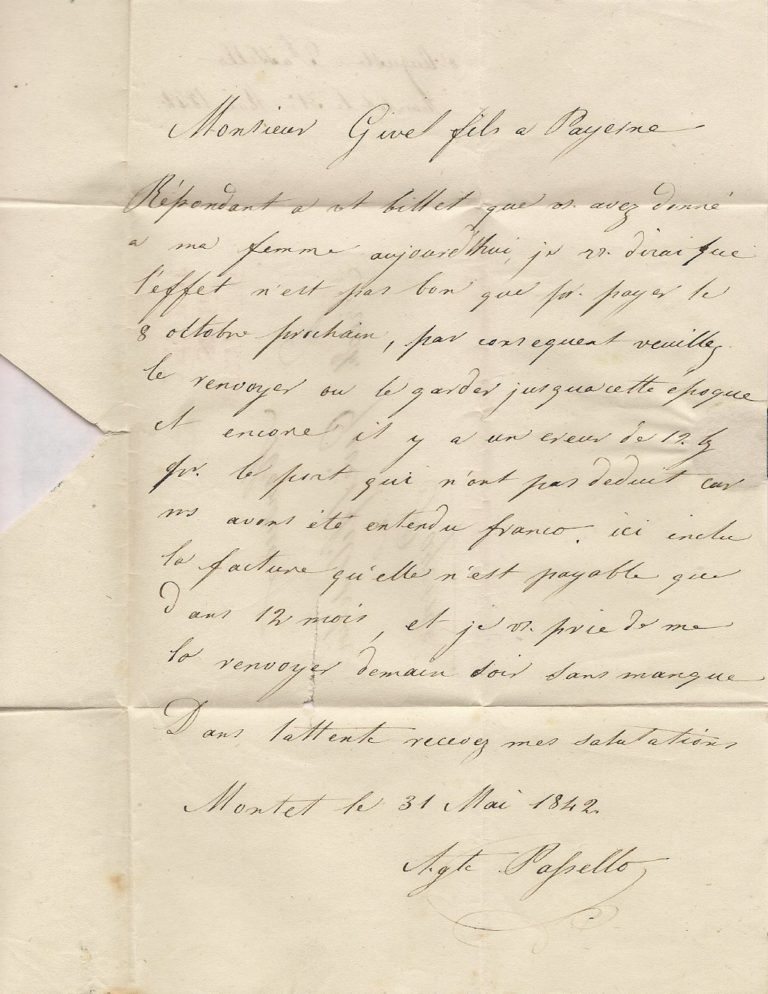 Monsieur Givel fils a Payerne
Répondant a vt billet que vs. avez donné
a ma femme aujourd'hui, je vs. dirai que
l'effet n'est pas bon que pr. payer le
8 octobre prochain, par consequent veuillez
le renvoyer ou le garder jusqua cette epoque
et encore il y a un ereur de 12
pr. le port qui n'ont pas deduit car
ns avons été entendu franco. ici inclu
la facture qu'elle n'est payable que
dans 12 mois, et je vs. prie de me
la renvoyer demain soir sans manque
Dans lattente recevez mes salutations
Montet le 31 Mai 1842.
Agte Passello